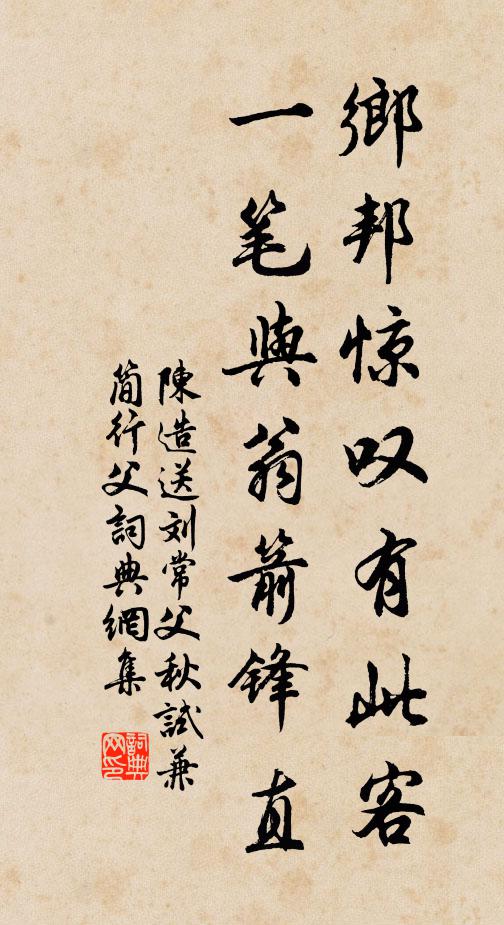 鄉邦惊叹有此客
一笔與翁箭锋直
陳造送刘常父秋試兼
簡行父詞典網集
詞典網印